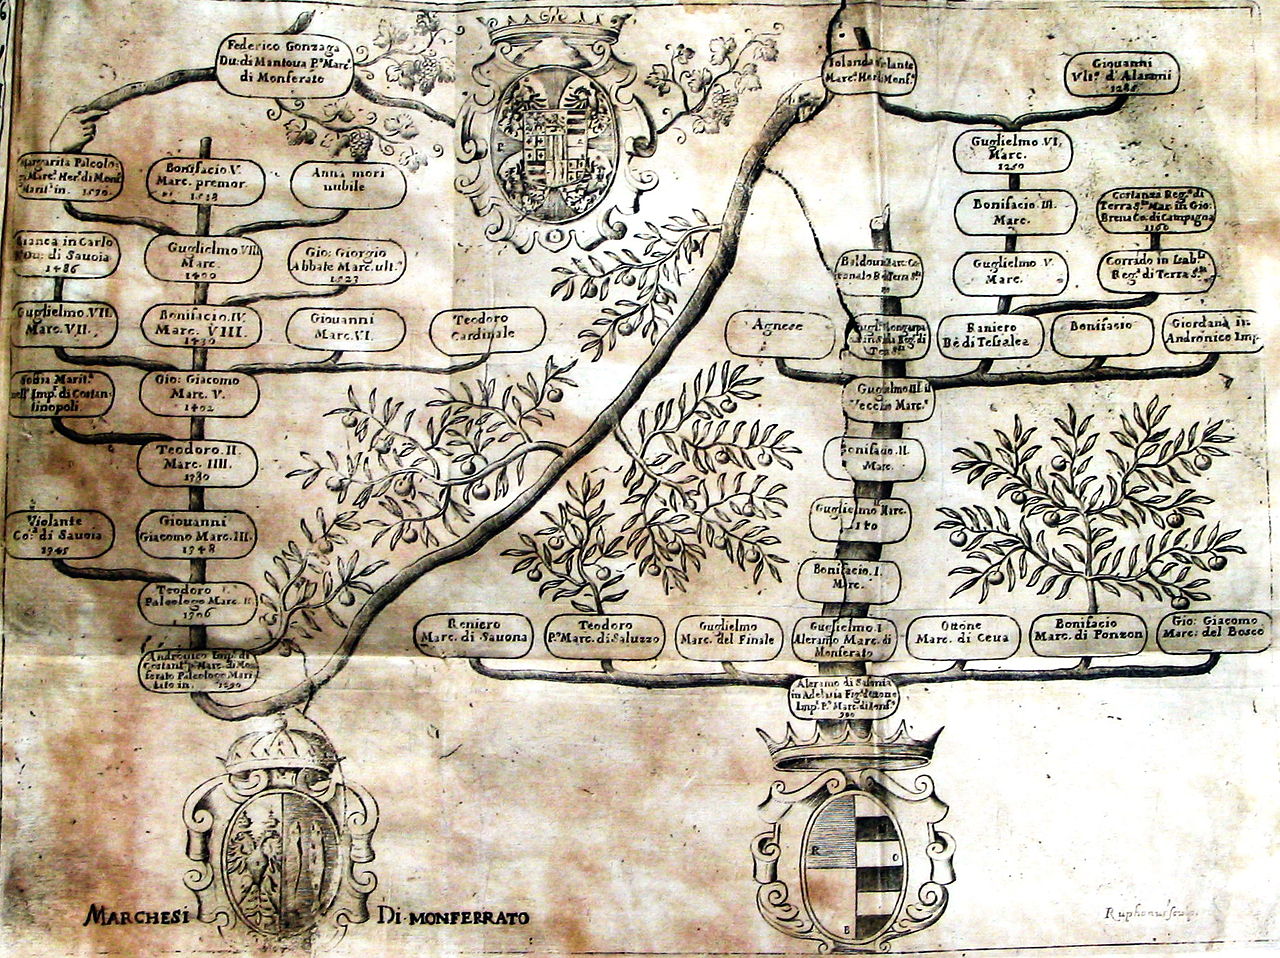 Federico Gonzaga
Du: di Mantoua Pº Marc.
di Monferato
Iolanda Violante
Marc. Her di Monfº
Giouanni
Vliº d'Alarami
1285
Margarita Paleolo
Marcª Herª di Monf
Marit' in. 1570.
Bonifacio V.
Marc. premor.
1518
Anna mori
nubile
Guglielmo VI.
Marc.
1250
Bonifacio III.
Marc.
Costanza Regª di
Terra Sª Mar. in Gio:
Brena Cº. di Campagna
1160
Bianca in Carlo
Du: di Sauoia
1486
Guglielmo VIII
Marc.
1400
Gio: Giorgio
Abbate Marc. ultº
1523
Baldouin
Guglielmo V.
Marc.
Corrido in Isabª
Regª di Terra Sª
Guglielmo VII.
Marc. VII.
Bonifacio IV.
Marc. VIII.
1430
Giouanni
Marc. VI.
Teodoro
Cardinale
Agnese
Raniero
Rè di Tessalea
Bonifacio
Giordana in
Andronico Imp.
Soffia Maritª
nell' Impº di Costan
tinopoli.
Gio: Giacomo
Marc. V.
1402
Guglielmo III il
Vecchio Marcº
Teodoro. II.
Marc. IIII.
1380
Bonifacio II.
Marc.
Violante
Coª di Sauoia
1345
Giouanni
Giacomo Marc. III.
1348
Guglielmo Marc.
Teodoro
Paleologo Marc. II
1306
Bonifacio. I.
Marc.
Reniero
Marc. di Sauona
Teodoro
Pº Marc. di Saluzzo
Guglielmo
Marc. del Finale
Guglielmo. I
Aleramo Marc. di
Monferato
Ottone
Marc. di Ceua
Bonifacio
Marc. di Ponzon
Gio: Giacomo
Marc. del Bosco
Andronico Impº di
Costantº Marc. di Mon
ferato Paleologo Mari
tato in. 1290
Aleramo di Sasonia
in Adelasia Figª de Ottone
Impº Pº Marc. di Monfº
R
O
B
MARCHESI DI MONFERRATO
Ruphonus sculp.